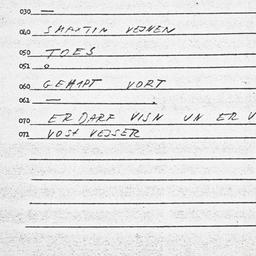 030 —
040 SMARTIN VEJNEN
050 TOES
051 o
060 GEHAPT VORT
061 —
070 ER DARF VISN UN ER V
071 VOS+ VEJSER